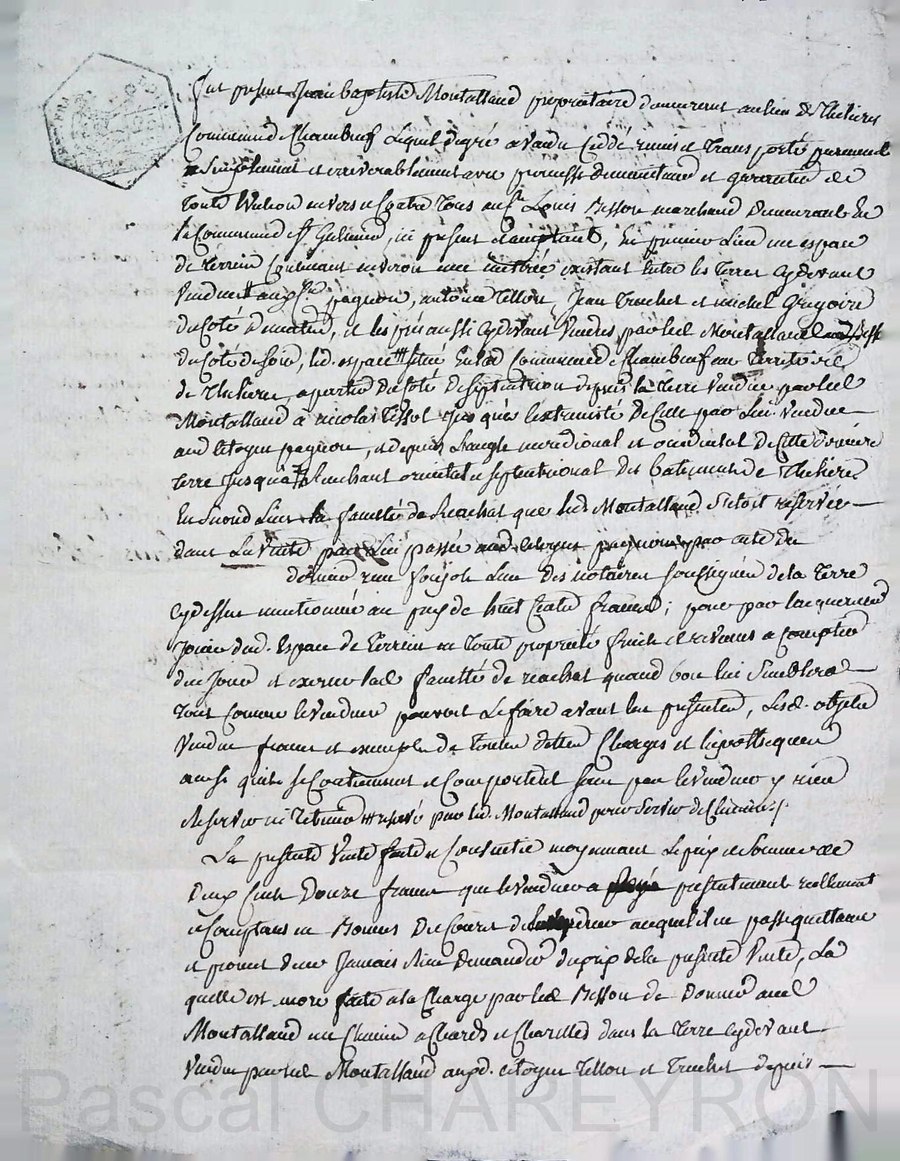 fut present Jean baptiste Montalland propriétaire demeurent au lieu de Thelieres
Commune Chambeuf Lequel degré a vendu Ceddé remis et Transporté purement
Simplement et irrevocablement avec promesse de maintenue et garantie de
Toute envers et Contre Tous au Cn Louis Besson marchand Demeurant En
la Commune St Galmier, ici present et acceptant, En premier Lieu un espace
de Terrein Contenant environ une metérée existant Entre les Terres cydevant
Vendues aux Cns pagnon, antoine Tellon, Jean Truchet et michel Gregoire
du Coté de matin, et les prés aussi cydevant Vendus par led Montalland
du Coté de soir, led. espace situé En lad Commune Chambeuf au Territoire
de Theliere, a partir du Coté de septentrion depuis la Terre Vendue par led
Montalland à nicolas Tissot jusqu'à L'extremité de Celle par Lui Vendue
aud Citoyen pagnon, et depuis L'angle meridional et occidental de Cette derniere
terre jusqu'à oriental et septentrional des batimens de Theliere
En second Lieu la faculté de Reachat que led Montalland s'etoit reservée
dans La Vente par Lui passée aud Citoyen pagnon par acte du
dernier reçu Lun des notaires soussignés de la Terre
cydessus mentionnée au prix de huit Cents francs; pour par Lacquereur
Jouir dud. Espace de Terrein en Toute propriété fruits et revenus a Compter
de ce Jour et exercer lad faculté de reachat quand bon lui Semblera
Tout Comme le Vendeur pouvoit Le faire avant Les presentes, Lesd. objets
Vendus francs et exempts de Toutes dettes Charges et hypotheques
ainsi qu'ils se Contiennent et Comportent sans par le Vendeur y rien
Reserver ni retenir par led. Montalland pour servir de Chemin
La presente Vente faite et Consentie moyennant Le prix et Somme de
Deux Cents Douze francs que le Vendeur a presentement reellement
et Comptant en Bonnes du Cours de acquereur il en passe quittance
et promet den Jamais Rien Demander du prix de la presente Vente, La
quelle est encore faite a la Charge par led Besson de Donner aud
Montalland un Chemin a Chards et Charettes dans la Terre cydevant
Vendue par led Montalland auxd. citoyens Tellon et Truchet depuis
Pascal CHAREYRON